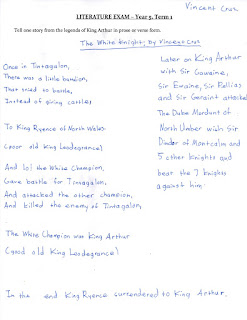 Vincent Cruz
LITERATURE EXAM – Year 5, Term 1
Tell one story from the legends of King Arthur in prose or verse form.
The White Knight: by Vincent Cruz
Once in Tintagalon,
There was a little battalion,
That tried to battle,
Instead of giving cattles
To King Ryence of North Wales
(poor old King Leodegrance)
And lo! the White Champion,
Gave battle for Tintagalon,
And attacked the other champion,
And killed the enemy of Tintagalon,
The White Champion was King Arthur
(good old King Leodegrance)
In the end King Ryence surrendered to King Arthur.
Later on King Arthur
with Sir Gawaine,
Sir Ewaine, Sir Pellias
and Sir Geraint attacked
The Duke Mordunt of
North Umber with Sir
Dinder of Montcalm and
5 other knights and
bear the 7 knights
against him